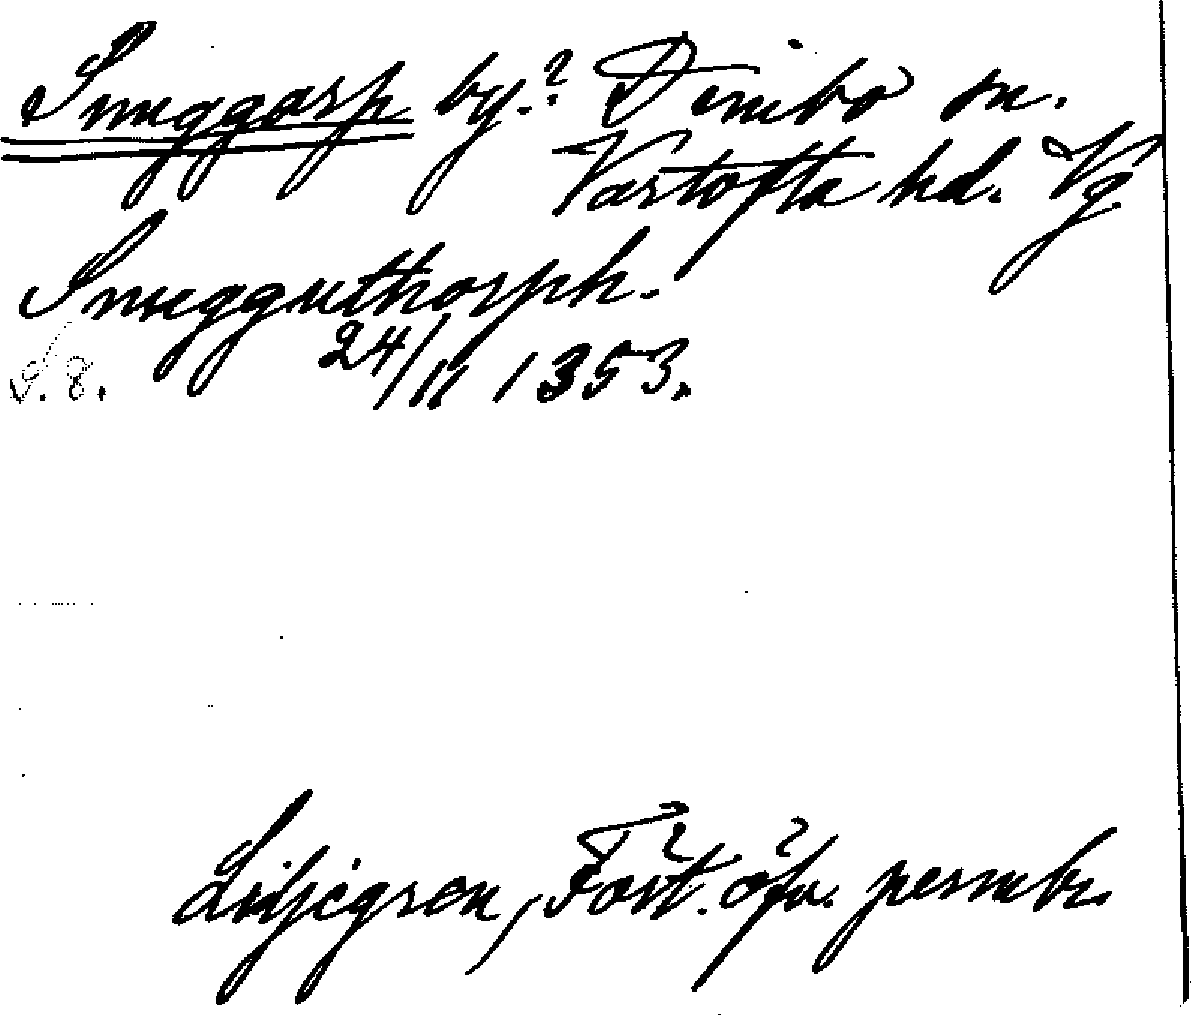 Smuggarp by.? Dimbo sn.
Vartofta hd. Vg.
Smugguthorph.
S. 8. 24/11 1353.
Liljegren, Fört. öfv. permbr.